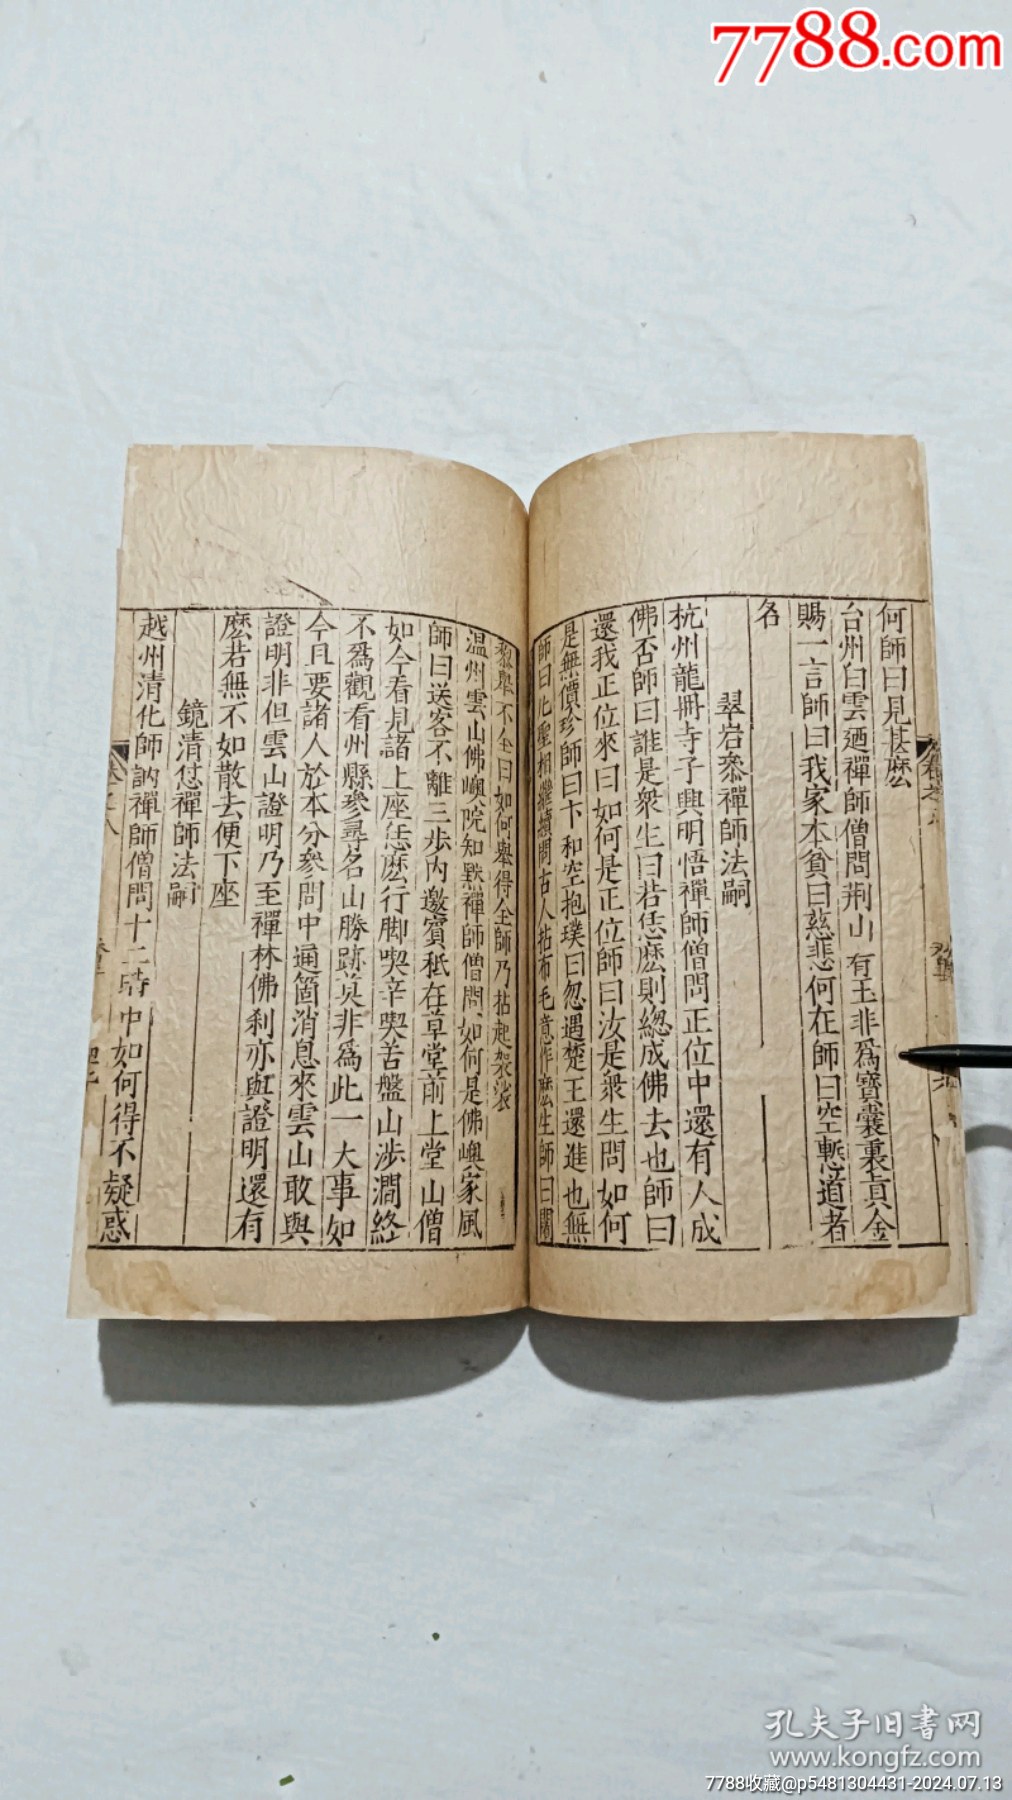 7788.com
何師曰見甚麽
台州白雲廼禪師僧問荆山有玉非爲寶囊裏真金
賜一言師曰我家本貧曰慈悲何在師曰空慙道者
名
翠岩叅禪師法嗣
杭州龍冊寺子興明悟禪師僧問正位中還有人成
佛否師曰誰是衆生曰若恁麽則緫成佛去也師曰
還我正位來曰如何是正位師曰汝是衆生問如何
是無價珍師曰卞和空抱璞曰忽遇楚王還進也無
師曰凡聖相繼續問古人拈布毛意作麽生師曰闍
黎舉不全曰如何舉得全師乃拈起袈裟
温州雲山佛嶼院知默禪師僧問如何是佛嶼家風
師曰送客不離三步內邀賓秪在草堂前上堂山僧
如今看見諸上座恁麽行脚喫辛喫苦盤山涉澗終
不爲觀看州縣參尋名山勝跡莫非爲此一大事如
今且要諸人於本分參問中通箇消息來雲山敢與
證明非但雲山證明乃至禪林佛刹亦與證明還有
麽若無不如散去便下座
鏡清怤禪師法嗣
越州清化師訥禪師僧問十二時中如何得不疑惑
卷之八
孔夫子旧書网
www.kongfz.com
7788收藏@p5481304431-2024.07.13